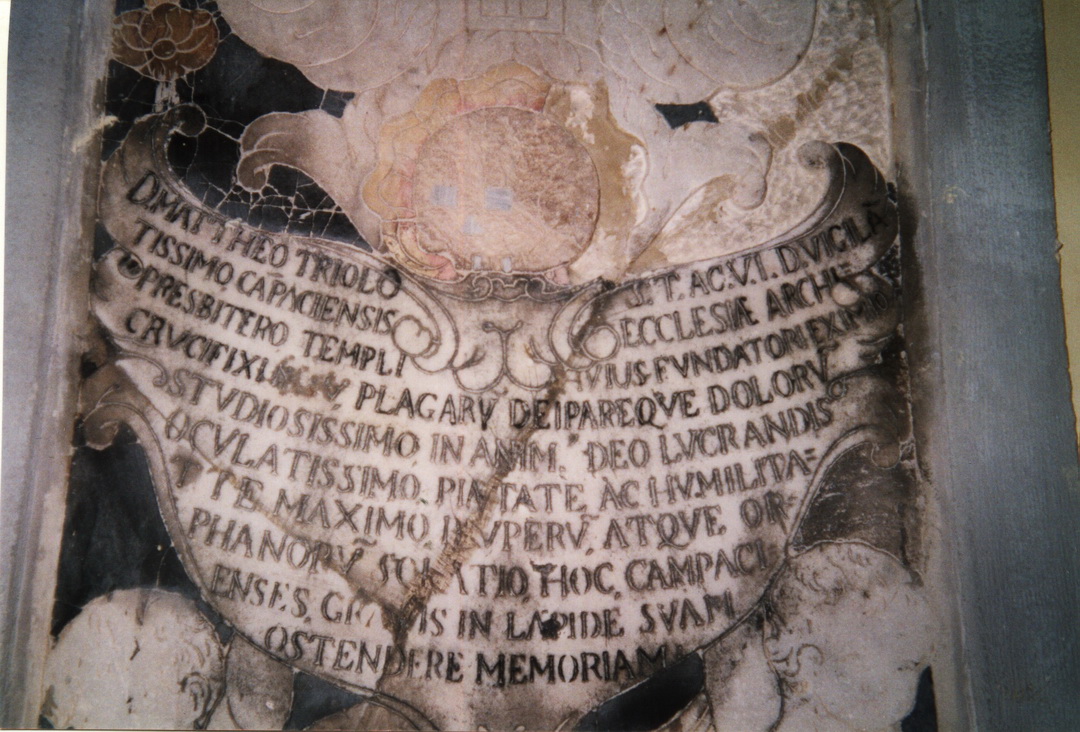 D. MATTHEO TRIOLO S.T. AC.V.I. D. VIGILĀ
TISSIMO CAPACIENSIS ECCLESIÆ ARCHI=
PRESBITERO TEMPLI HVIVS FVNDATORI EXIMIO
CRVCIFIXI PLAGARV̄ DEIPAREQVE DOLORV̄
STVDIOSISSIMO, IN ANIM. DEO LVCRANDIS
OCVLATISSIMO, PIETATE, AC HVMILITA=
TE MAXIMO, PAVPERV̄, ATQVE OR-
PHANORV̄ SOLATIO, HOC, CAMPACI
ENSES, GRATVIS IN LAPIDE SVAM
OSTENDERE MEMORIAM